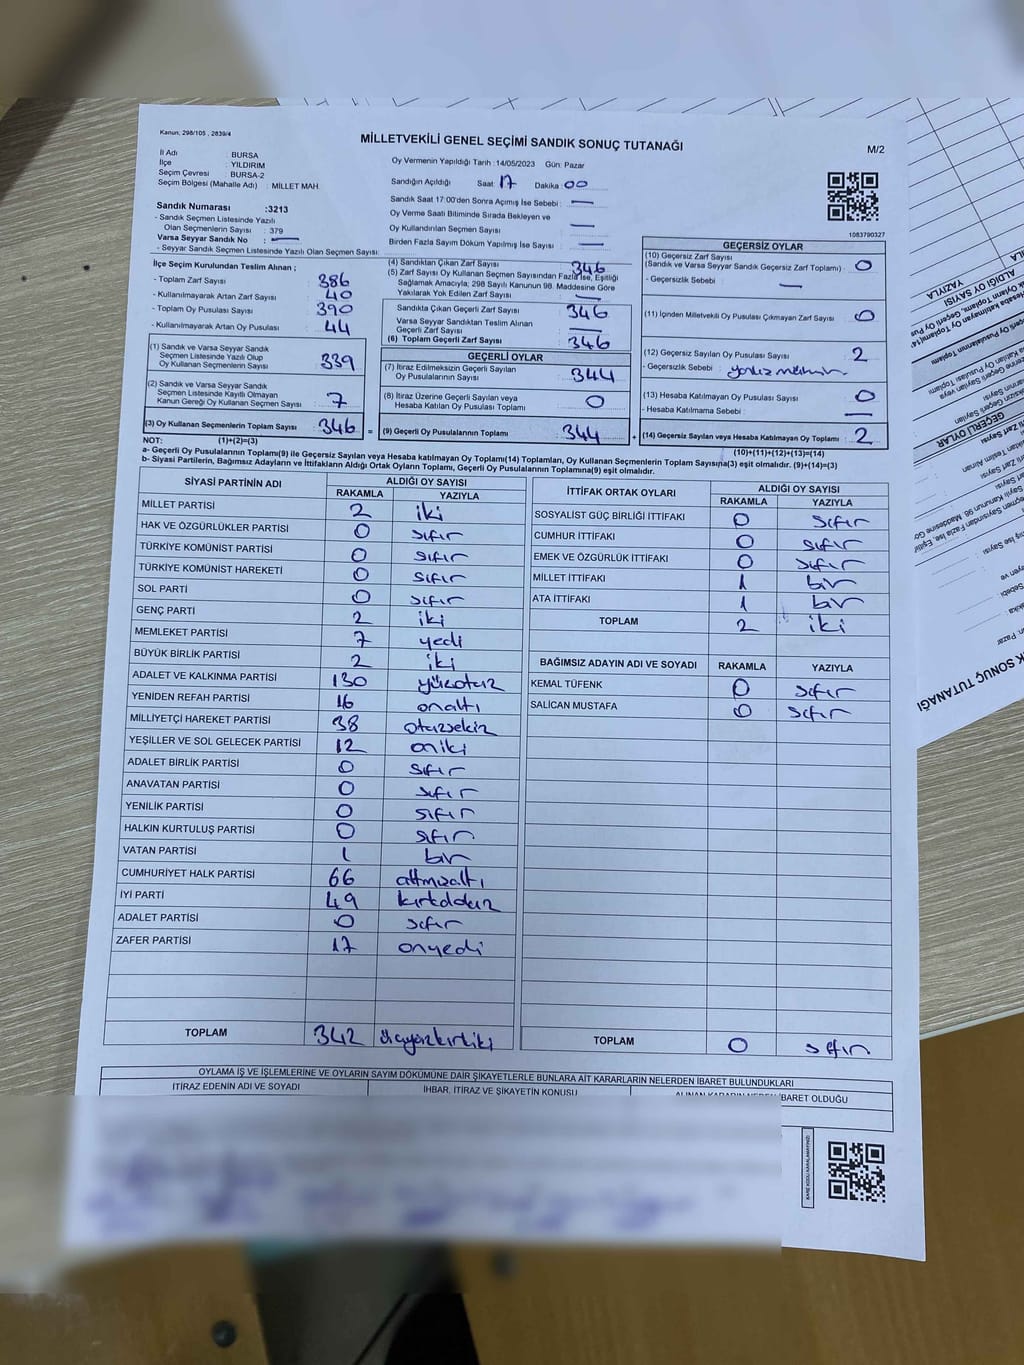 Kanun; 298/105 , 2839/4
MİLLETVEKİLİ GENEL SEÇİMİ SANDIK SONUÇ TUTANAĞI
M/2
İl Adı : BURSA
İlçe : YILDIRIM
Seçim Çevresi : BURSA-2
Seçim Bölgesi (Mahalle Adı) : MİLLET MAH
Sandık Numarası :3213
- Sandık Seçmen Listesinde Yazılı
Olan Seçmenlerin Sayısı : 379
Varsa Seyyar Sandık No : —
- Seyyar Sandık Seçmen Listesinde Yazılı Olan Seçmen Sayısı:
Oy Vermenin Yapıldığı Tarih :14/05/2023 Gün: Pazar
Sandığın Açıldığı Saat: 17 Dakika: 00
Sandık Saat 17:00'den Sonra Açımış İse Sebebi : —
Oy Verme Saati Bitiminde Sırada Bekleyen ve
Oy Kullandırılan Seçmenlerin Sayısı : —
Birden Fazla Sayım Döküm Yapılmış İse Sayısı : —
1083790327
İlçe Seçim Kurulundan Teslim Alınan ;
- Toplam Zarf Sayısı : 386
- Kullanılmayarak Artan Zarf Sayısı : 40
- Toplam Oy Pusulası Sayısı : 390
- Kullanılmayarak Artan Oy Pusulası : 44
(1) Sandık ve Varsa Seyyar Sandık
Seçmen Listesinde Yazılı Olup
Oy Kullanan Seçmenlerin Sayısı : 339
(2) Sandık ve Varsa Seyyar Sandık
Seçmen Listesinde Kayıtlı Olmayan
Kanun Gereği Oy Kullanan Seçmen Sayısı : 7
(3) Oy Kullanan Seçmenlerin Toplam Sayısı : 346 =
(4) Sandıktan Çıkan Zarf Sayısı : 346
(5) Zarf Sayısı Oy Kullanan Seçmen Sayısından Fazla İse, Eşitliği
Sağlamak Amacıyla; 298 Sayılı Kanunun 98. Maddesine Göre
Yakılarak Yok Edilen Zarf Sayısı : —
Sandıkta Çıkan Geçerli Zarf Sayısı : 346
Varsa Seyyar Sandıktan Teslim Alınan
Geçerli Zarf Sayısı : —
(6) Toplam Geçerli Zarf Sayısı : 346
GEÇERLİ OYLAR
(7) İtiraz Edilmeksizin Geçerli Sayılan
Oy Pusulalarının Sayısı : 344
(8) İtiraz Üzerine Geçerli Sayılan veya
Hesaba Katılan Oy Pusulası Toplamı : 0
(9) Geçerli Oy Pusulalarının Toplamı : 344 +
GEÇERSİZ OYLAR
(10) Geçersiz Zarf Sayısı
(Sandık ve Varsa Seyyar Sandık Geçersiz Zarf Toplamı) : 0
- Geçersizlik Sebebi : —
(11) İçinden Milletvekili Oy Pusulası Çıkmayan Zarf Sayısı : 0
(12) Geçersiz Sayılan Oy Pusulası Sayısı : 2
- Geçersizlik Sebebi :
(13) Hesaba Katılmayan Oy Pusulası Sayısı : 0
- Hesaba Katılmama Sebebi : —
(14) Geçersiz Sayılan veya Hesaba Katılmayan Oy Toplamı : 2
NOT: (1)+(2)=(3)
(10)+(11)+(12)+(13)=(14)
a- Geçerli Oy Pusulalarının Toplamı(9) ile Geçersiz Sayılan veya Hesaba Katılmayan Oy(14) Toplamları, Oy Kullanan Seçmenlerin Toplam Sayısına(3) eşit olmalıdır. (9)+(14)=(3)
b- Siyasi Partilerin, Bağımsız Adayların ve İttifakların Aldığı Ortak Oyların Toplamı, Geçerli Oy Pusulalarının Toplamına(9) eşit olmalıdır.
SİYASİ PARTİNİN ADI ALDIĞI OY SAYISI
RAKAMLA YAZIYLA
MİLLET PARTİSİ 2 iki
HAK VE ÖZGÜRLÜKLER PARTİSİ 0 sıfır
TÜRKİYE KOMÜNİST PARTİSİ 0 sıfır
TÜRKİYE KOMÜNİST HAREKETİ 0 sıfır
SOL PARTİ 0 sıfır
GENÇ PARTİ 2 iki
MEMLEKET PARTİSİ 7 yedi
BÜYÜK BİRLİK PARTİSİ 2 iki
ADALET VE KALKINMA PARTİSİ 130 yüzotuz
YENİDEN REFAH PARTİSİ 16 onaltı
MİLLİYETÇİ HAREKET PARTİSİ 38 otuzsekiz
YEŞİLLER VE SOL GELECEK PARTİSİ 12 oniki
ADALET BİRLİK PARTİSİ 0 sıfır
ANAVATAN PARTİSİ 0 sıfır
YENİLİK PARTİSİ 0 sıfır
HALKIN KURTULUŞ PARTİSİ 0 sıfır
VATAN PARTİSİ 1 bir
CUMHURİYET HALK PARTİSİ 66 altmışaltı
İYİ PARTİ 49 kırkdokuz
ADALET PARTİSİ 0 sıfır
ZAFER PARTİSİ 17 onyedi
TOPLAM 342 üçyüzkırkiki
İTTİFAK ORTAK OYLARI ALDIĞI OY SAYISI
RAKAMLA YAZIYLA
SOSYALİST GÜÇ BİRLİĞİ İTTİFAKI 0 sıfır
CUMHUR İTTİFAKI 0 sıfır
EMEK VE ÖZGÜRLÜK İTTİFAKI 0 sıfır
MİLLET İTTİFAKI 1 bir
ATA İTTİFAKI 1 bir
TOPLAM 2 iki
BAĞIMSIZ ADAYIN ADI VE SOYADI RAKAMLA YAZIYLA
KEMAL TÜFENK 0 sıfır
SALİCAN MUSTAFA 0 sıfır
TOPLAM 0 sıfır
OYLAMA İŞ VE İŞLEMLERİNE VE OYLARIN SAYIM DÖKÜMÜNE DAİR ŞİKAYETLERLE BUNLARA AİT KARARLARIN NELERDEN İBARET BULUNDUKLARI
İTİRAZ EDENİN ADI VE SOYADI İHBAR, İTİRAZ VE ŞİKAYETİN KONUSU ALINAN KARARIN NEDEN İBARET OLDUĞU